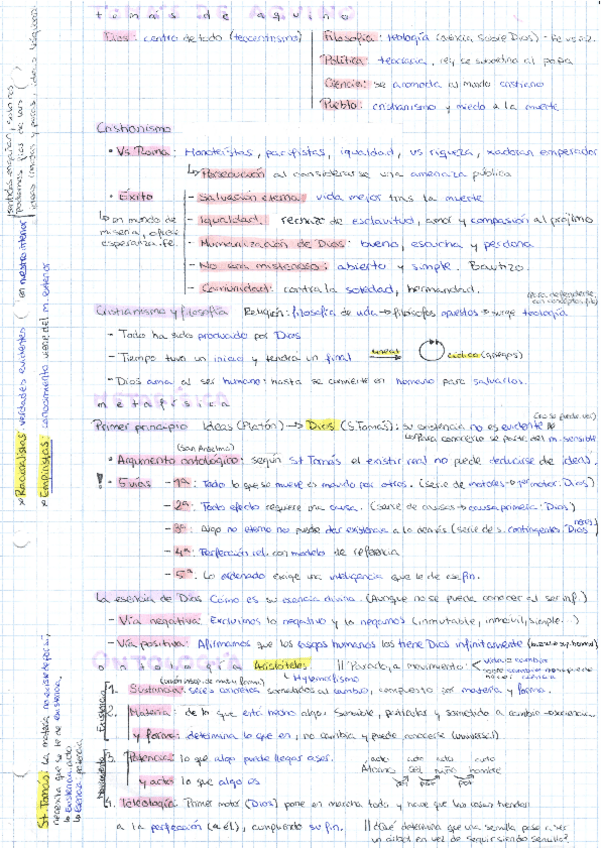 tomás de aquino
Dios: centro de todo (teocentrismo)
Filosofía: teología (ciencia sobre Dios) - Fe vs rz.
Política: teocracia, rey se subordina al papa
Ciencia: se amolda al mundo cristiano
Pueblo: cristianismo y miedo a la muerte
Cristianismo
• Vs Roma: Monoteístas, pacifistas, igualdad, vs riqueza, x adoran emperador
↳ Persecución al considerarse una amenaza pública
• Éxito
↳ en mundo de miseria, ofrece esperanza. fe.
- Salvación eterna: vida mejor tras la muerte
- Igualdad. rechazo de esclavitud, amor y compasión al prójimo
- Humanización de Dios: bueno, escucha y perdona
- No era misterioso: abierto y simple. Bautizo.
- Comunidad: contra la soledad, hermandad.
Cristianismo y filosofía Religión: filosofía de vida → filósofos opuestos → surge teología
- Todo ha sido producido por Dios
- Tiempo tuvo un inicio y tendrá un final lineal → cíclico (griegos)
- Dios ama al ser humano: hasta se convierte en humano para salvarlos.
metafísica
Primer principio Ideas (Platón) → Dios (S. Tomás): su existencia no es evidente
para conocerle se parte del m. sensible
(San Anselmo)
• Argumento ontológico: según St Tomás el existir real no puede deducirse de ideas.
! • 5 vías - 1ª: Todo lo que se mueve es movido por otros. (serie de motores → 1er motor: Dios)
- 2ª: Todo efecto requiere una causa. (serie de causas → causa primera: Dios)
- 3ª: Algo no eterno no puede dar existencia a lo demás (serie de s. contingentes
- 4ª: Perfección rel. con modelo de referencia
- 5ª: Lo ordenado exige una inteligencia que le de ese fin.
La esencia de Dios Cómo es su esencia divina. (Aunque no se puede conocer al ser inf.)
- Vía negativa: Excluimos lo negativo y lo negamos (inmutable, inmóvil, simple...)
- Vía positiva: Afirmamos que los rasgos humanos los tiene Dios infinitamente
ontología Aristóteles:
↳ Hylemorfismo
Existencia
1. Sustancia: seres concretos sometidos al cambio, compuesto por materia y forma.
2. Materia: de lo que está hecho algo. Sensible, particular y sometido a cambio
y forma: determina lo que es, no cambia y puede conocerse (universal)
Movimiento
3. Potencia: lo que algo puede llegar a ser.
y acto: lo que algo es
acto acto acto acto
niño hombre
4. Teleología: Primer motor (Dios) pone en marcha todo y hace que las cosas tiendan
a la perfección (a él), cumpliendo su fin.
¿Qué determina que una semilla pase a ser
un árbol en vez de seguir siendo semilla?
* Racionalistas: verdades evidentes en nuestro interior
* Empiristas: conocimiento viene del m. exterior
St. Tomás: La materia no existe por sí,
necesita que se le de existencia.